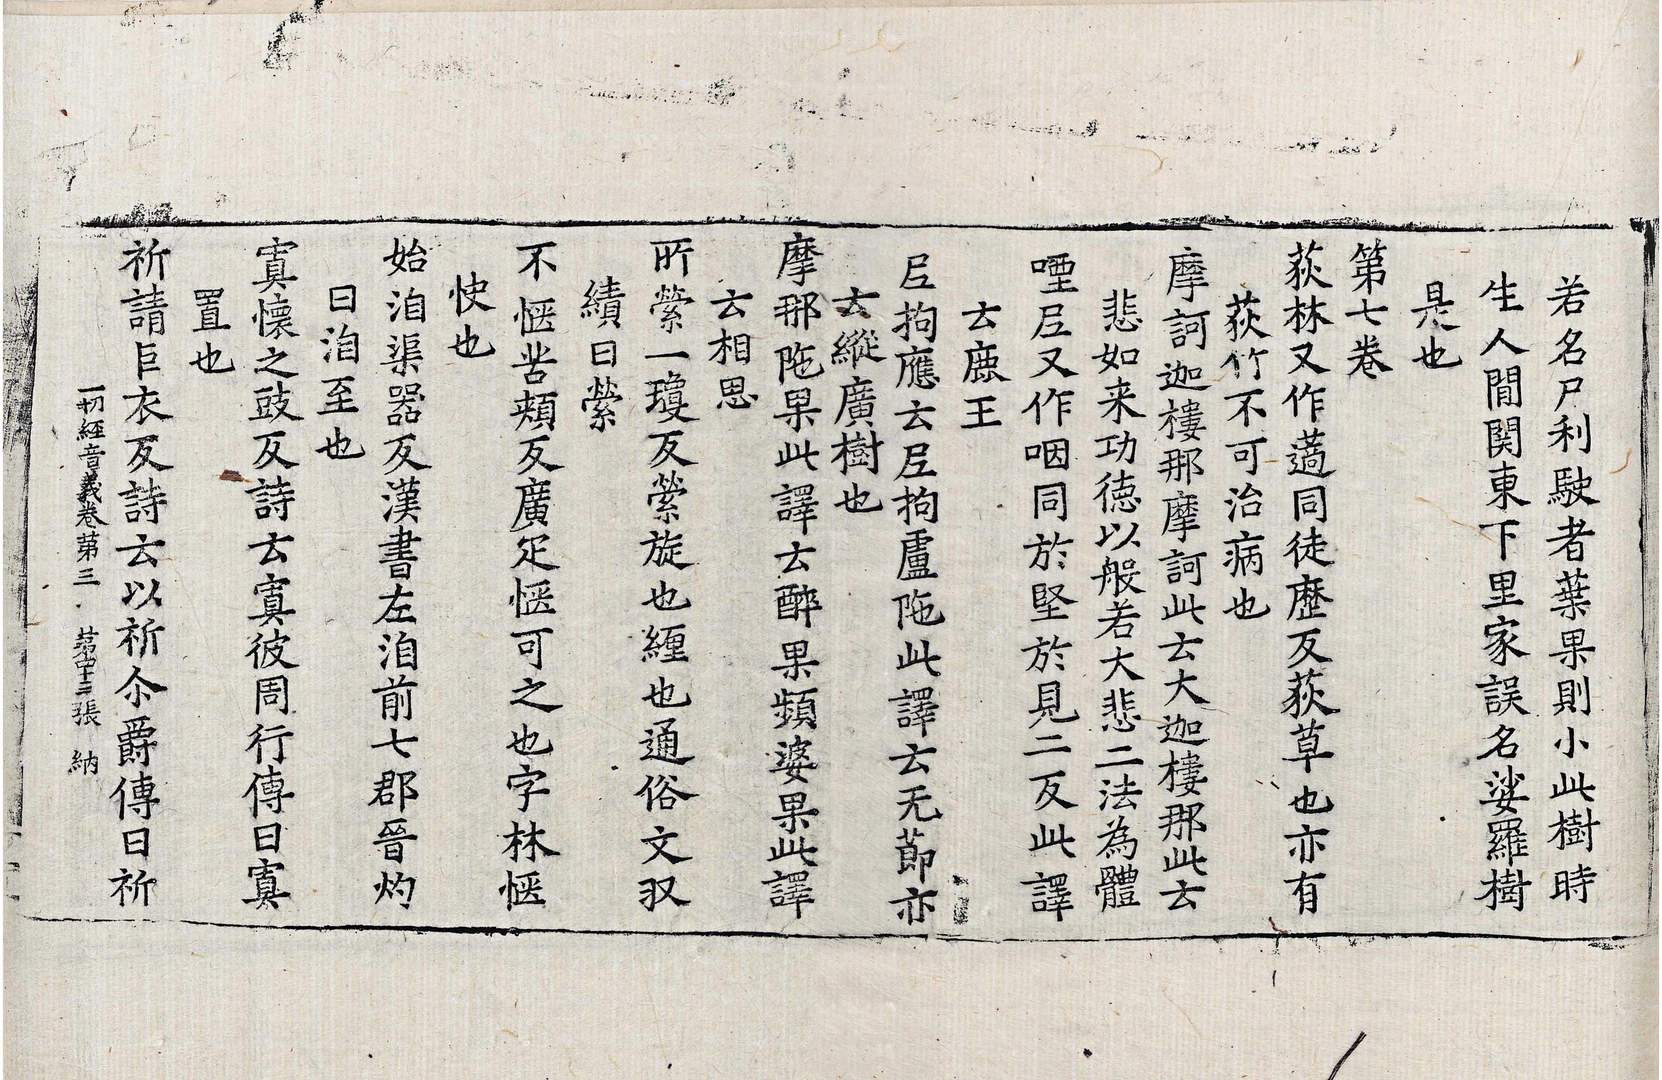 若名尸利駛者葉果則小此樹時
生人間関東下里家誤名娑羅樹
是也
第七卷
荻林又作藡同徒歷反荻草也亦有
荻竹不可治病也
摩訶迦樓那摩訶此云大迦樓那此云
悲如来功德以般若大悲二法為體
堙𡰱又作咽同於堅於見二反此譯
云鹿王
𡰱拘應云𡰱拘盧陁此譯云无莭亦
云縱廣樹也
摩那陁果此譯云醉果頻婆果此譯
云相思
所縈一瓊反縈旋也纏也通俗文収
績曰縈
不愜苦頰反廣疋愜可之也字林愜
快也
始洎渠器反漢書左洎前七郡晉灼
曰洎至也
寘懷之豉反詩云寘彼周行傳曰寘
置也
祈請巨衣反詩云以祈尒爵傳曰祈
一切經音義卷第三 第四十三張 納